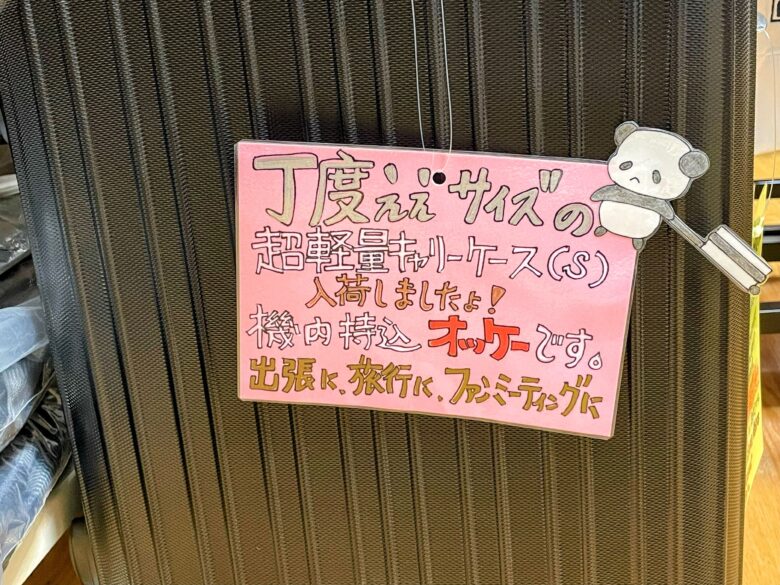 丁度ええ"サイズ"の
超軽量キャリーケース(S)
入荷しましたょ!
機内持込 オッケーです。
出張に、旅行に、ファンミーティングに